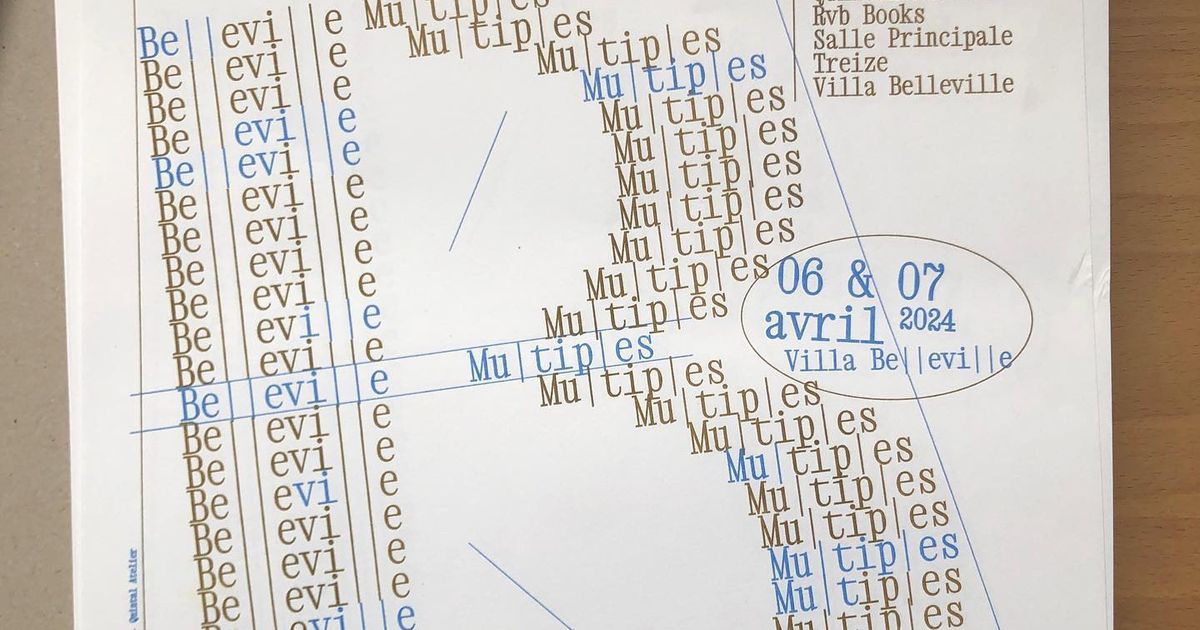 Be||evi||e
Be||evi||e
Be||evi||e
Be||evi||e
Be||evi||e
Be||evi||e
Be||evi||e
Be||evi||e
Be||evi||e
Be||evi||e
Be||evi||e
Be||evi||e
Be||evi||e
Be||evi||e
Be||evi||e
Be||evi||e
Be||evi||e
Be||evi||e
evi||e
Mu|tip|es
Mu|tip|es
Mu|tip|es
Mu|tip|es
Mu|tip|es
Mu|tip|es
Mu|tip|es
Mu|tip|es
Mu|tip|es
Mu|tip|es
Mu|tip|es
Mu|tip|es
Mu|tip|es
Mu|tip|es
Mu|tip|es
Mu|tip|es
Mu|tip|es
Mu|tip|es
Mu|tip|es
Mu|tip|es
Mu|tip|es
Rvb Books
Salle Principale
Treize
Villa Belleville
06 & 07
avril 2024
Villa Be||evi||e
Quintal Atelier